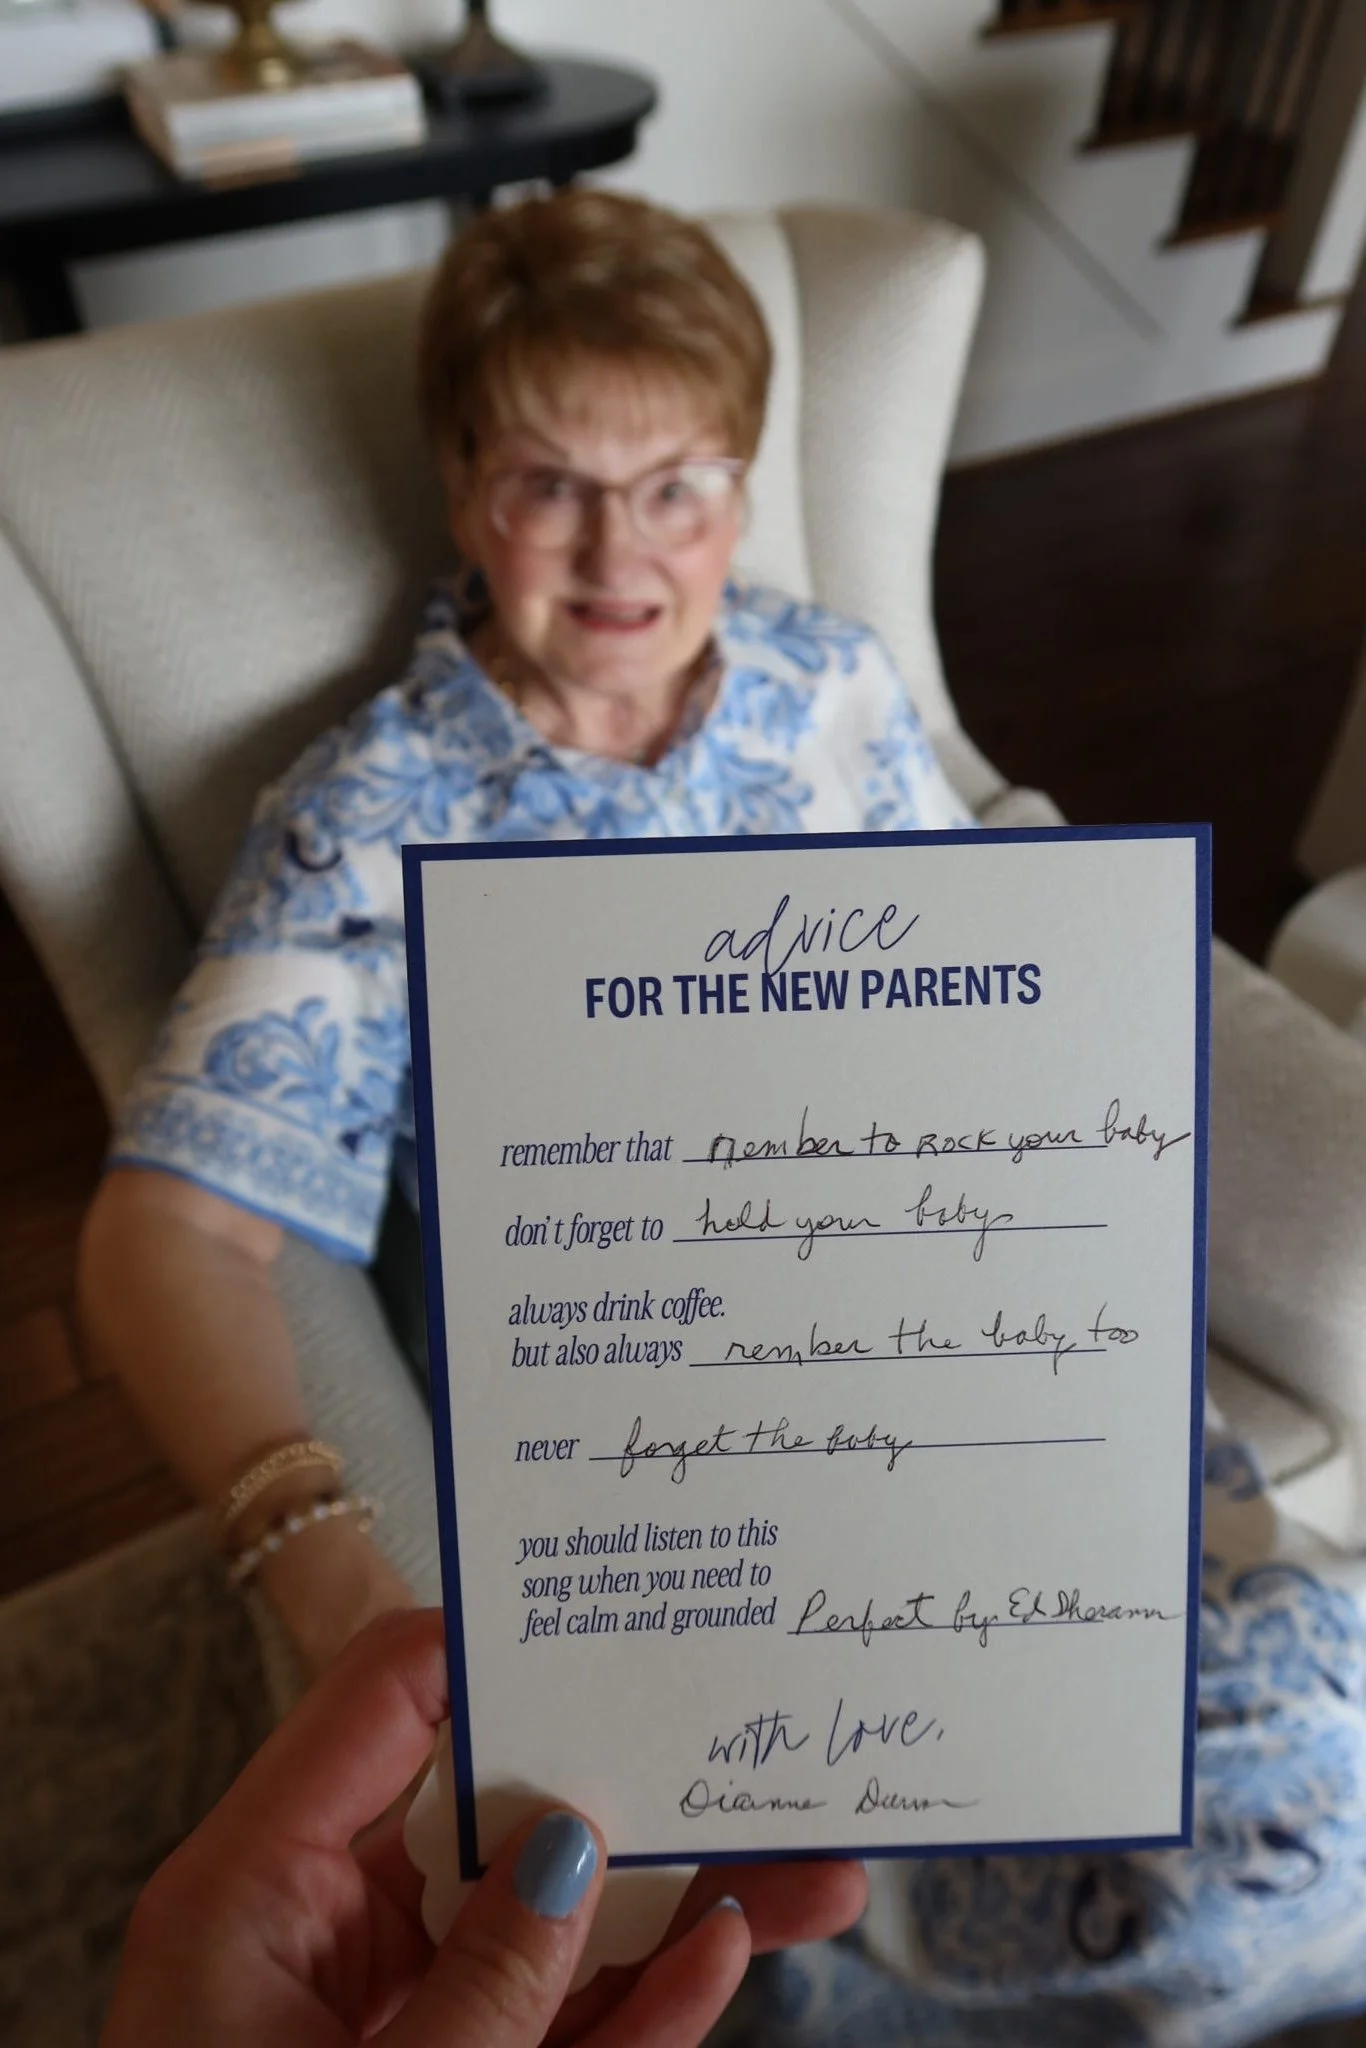 advice
FOR THE NEW PARENTS
remember that remember to Rock your baby
don't forget to hold your baby
always drink coffee.
but also always rember the baby too
never forget the baby
you should listen to this
song when you need to
feel calm and grounded Perfect by Ed Sheran
with love,
Dianne Dunn